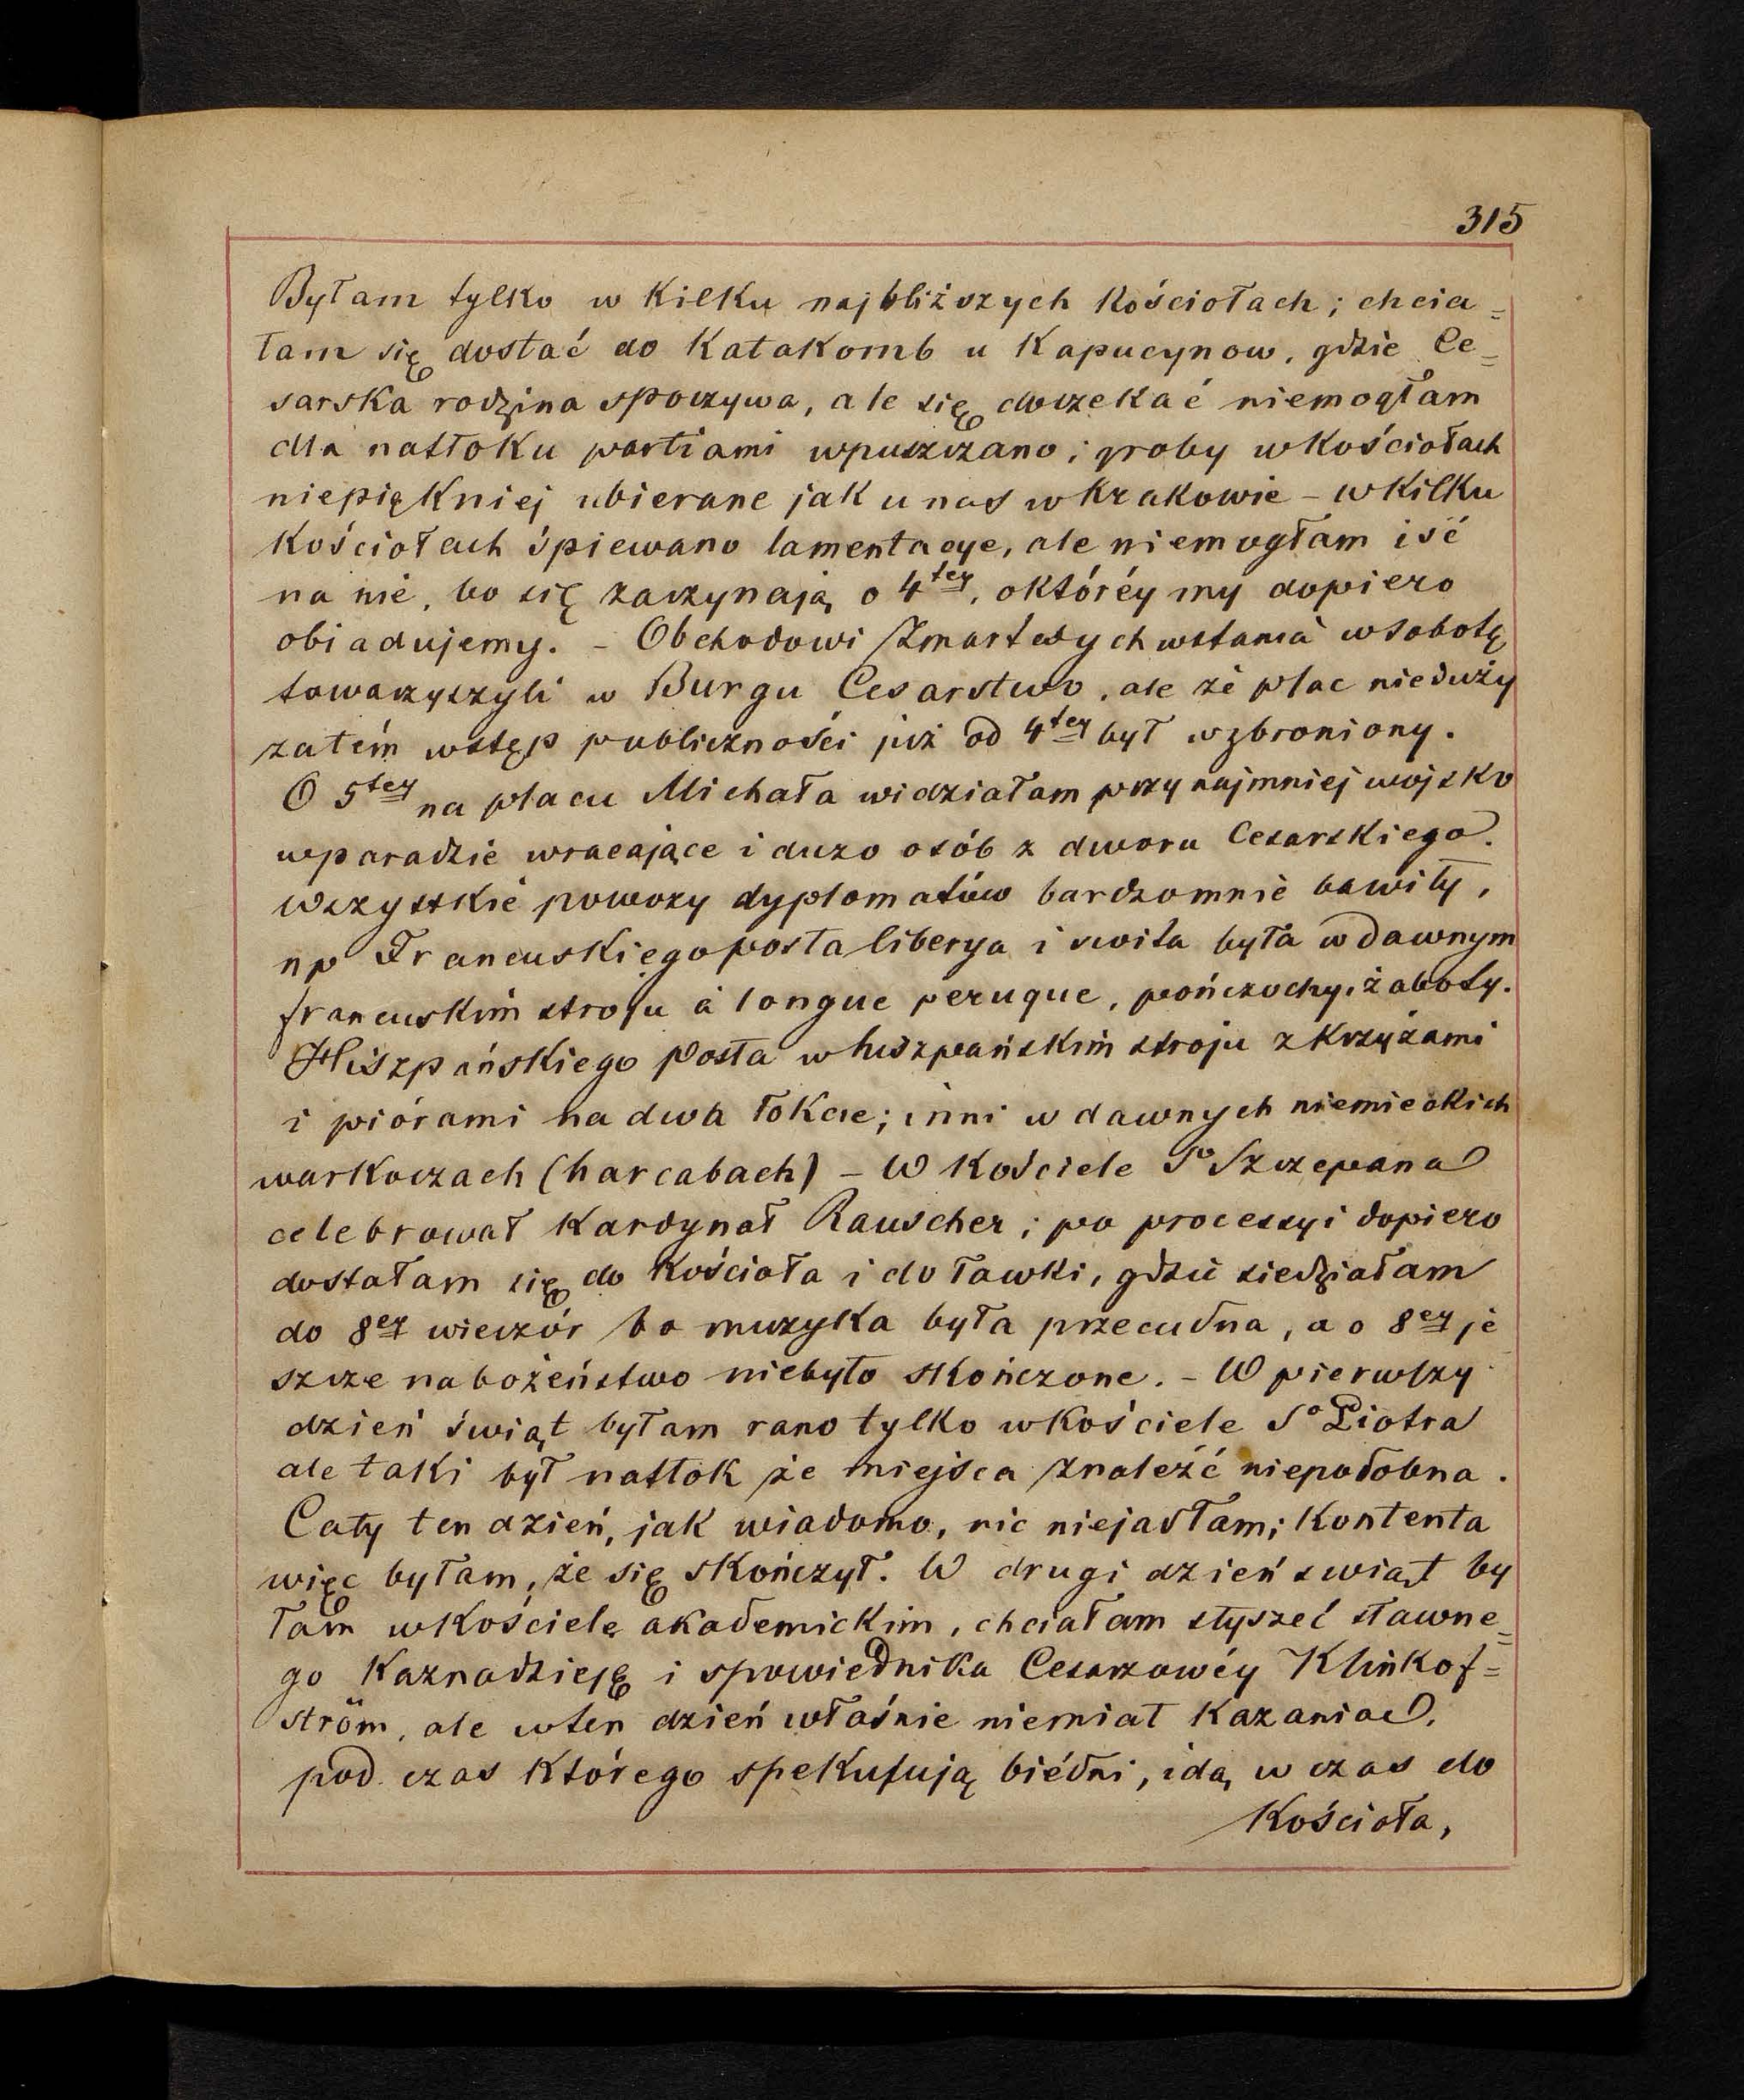 315
Byłam tylko w kilku najbliższych kościołach; chcia=
łam się dostać do Katakomb u Kapucynow, gdzie Ce=
sarska rodzina spoczywa, ale się doczekać niemogłam
dla natłoku partiami wpuszczano; groby wkościołach
niepiękniej ubierane jak u nas w Krakowie – wkilku
Kościołach śpiewano lamentacye, ale niemogłam iść
na nie, bo się zaczynają o 4tey, októréy my dopiero
obiadujemy. – Obchodowi Zmartwychwstania wsobotę
towarzyszyli w Burgu Cesarstwo, ale że plac nieduży
zatém wstęp publiczności już od 4tey był wzbroniony.
O 5tey na placu Michała widziałam przynajmniej wojsko
wparadzie wracające i dużo osób z dworu Cesarskiego.
Wszystkie powozy dyplomatów bardzomnie bawiły,
np Francuskiego posła liberya i swita była w dawnym
francuskim stroju à longue peruque, pończochy, żaboty.
Hiszpańskiego Posła w hiszpańskim stroju z krzyżami
i piórami na dwa łokcie; inni w dawnych niemieckich
warkoczach (harcabach) – W kościele So Szczepana
celebrował Kardynał Rauscher; po processyi dopiero
dostałam się do Kościoła i do ławki, gdzie siedziałam
do 8ey wieczór bo muzyka była przecudna, a o 8ey je
szcze nabożeństwo niebyło skończone. – W pierwszy
dzień świąt byłam rano tylko wkościele So Piotra
ale taki był natłok że miejsca znaleźć niepodobna.
Cały ten dzień, jak wiadomo, nic niejadłam; Kontenta
więc byłam, że się skończył. W drugi dzień swiąt by
łam wkościele akademickim, chciałam słyszeć sławne=
go Kaznodzieję i spowiednika Cesarzowéy Klinkof=
ström, ale wten dzień właśnie niemiał Kazania,
pod czas którego spekulują biédni, idą w czas do
Kościoła,